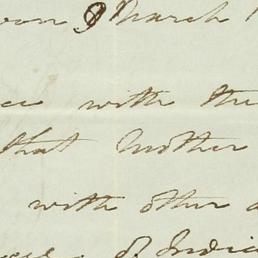 9 March
with the
that Mother
with other
of Indi